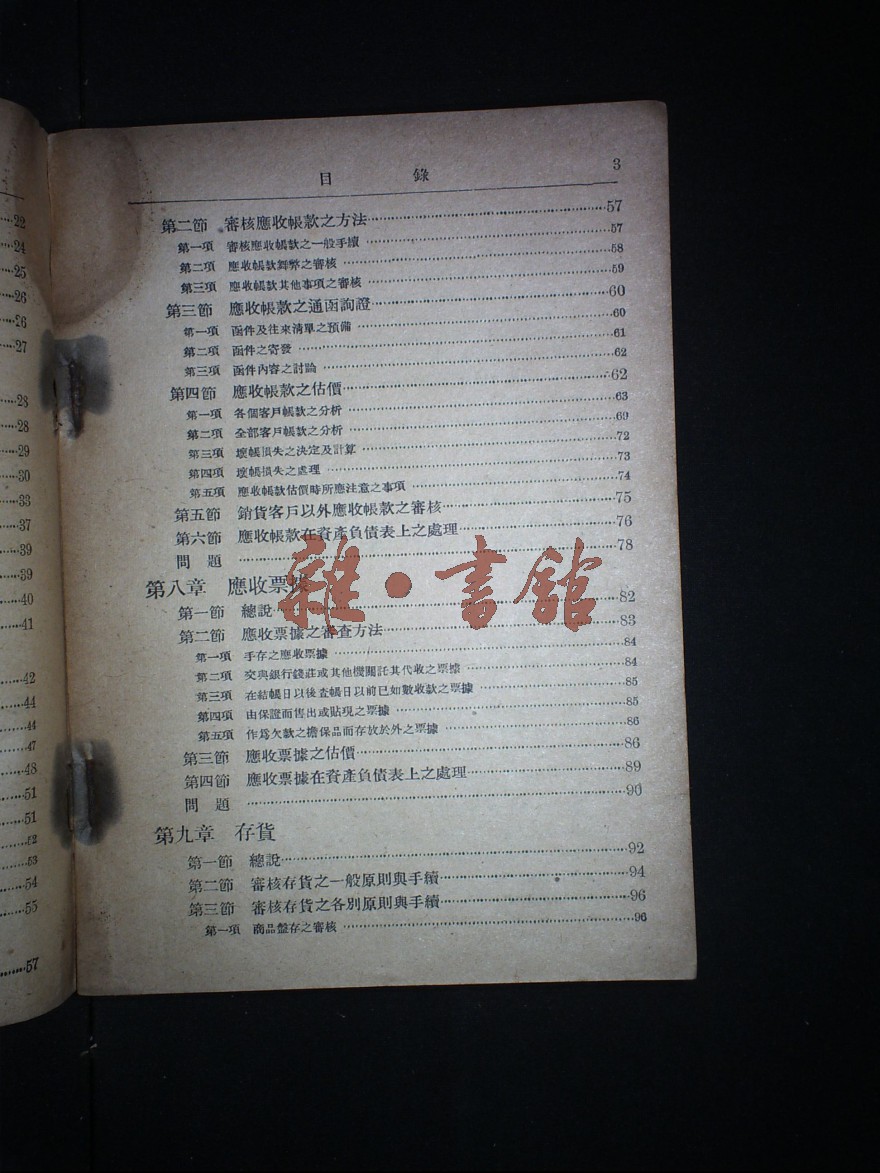 目 錄 3
第二節 審核應收帳款之方法 57
第一項 審核應收帳款之一般手續 57
第二項 應收帳款舞弊之審核 58
第三項 應收帳款其他事項之審核 59
第三節 應收帳款之通函詢證 60
第一項 函件及往來清單之預備 60
第二項 函件之寄發 61
第三項 函件內容之討論 62
第四節 應收帳款之估價 62
第一項 各個客戶帳款之分析 63
第二項 全部客戶帳款之分析 69
第三項 壞帳損失之決定及計算 72
第四項 壞帳損失之處理 73
第五項 應收帳款估價時所應注意之事項 74
第五節 銷貨客戶以外應收帳款之審核 75
第六節 應收帳款在資產負債表上之處理 76
問 題 78
第八章 應收票據
第一節 總說 82
第二節 應收票據之審查方法 83
第一項 手存之應收票據 84
第二項 交與銀行錢莊或其他機關託其代收之票據 84
第三項 在結帳日以後查帳日以前已如數收款之票據 85
第四項 由保證而售出或貼現之票據 85
第五項 作爲欠款之擔保品而存放於外之票據 86
第三節 應收票據之估價 86
第四節 應收票據在資產負債表上之處理 89
問 題 90
第九章 存貨
第一節 總說 92
第二節 審核存貨之一般原則與手續 94
第三節 審核存貨之各別原則與手續 96
第一項 商品盤存之審核 96
雜·書館
22
24
25
26
26
27
28
28
29
30
33
37
39
39
40
41
42
44
44
47
48
51
51
52
53
54
55
57